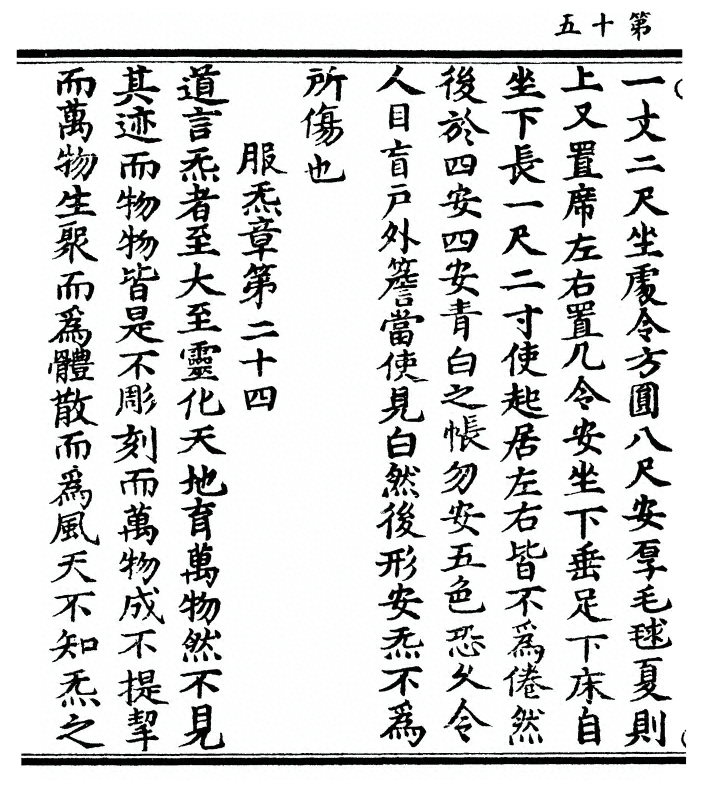 第十五
一丈二尺坐處令方圓八尺安厚毛毬夏則
上又置席左右置几令安坐下垂足下床自
坐下長一尺二寸使起居左右皆不爲倦然
後於四安四安青白之帳勿安五色恐久令
人目盲戶外簷當使見白然後形安炁不爲
所傷也
服炁章第二十四
道言炁者至大至靈化天地育萬物然不見
其迹而物物皆是不彫刻而萬物成不提挈
而萬物生聚而爲體散而爲風天不知炁之